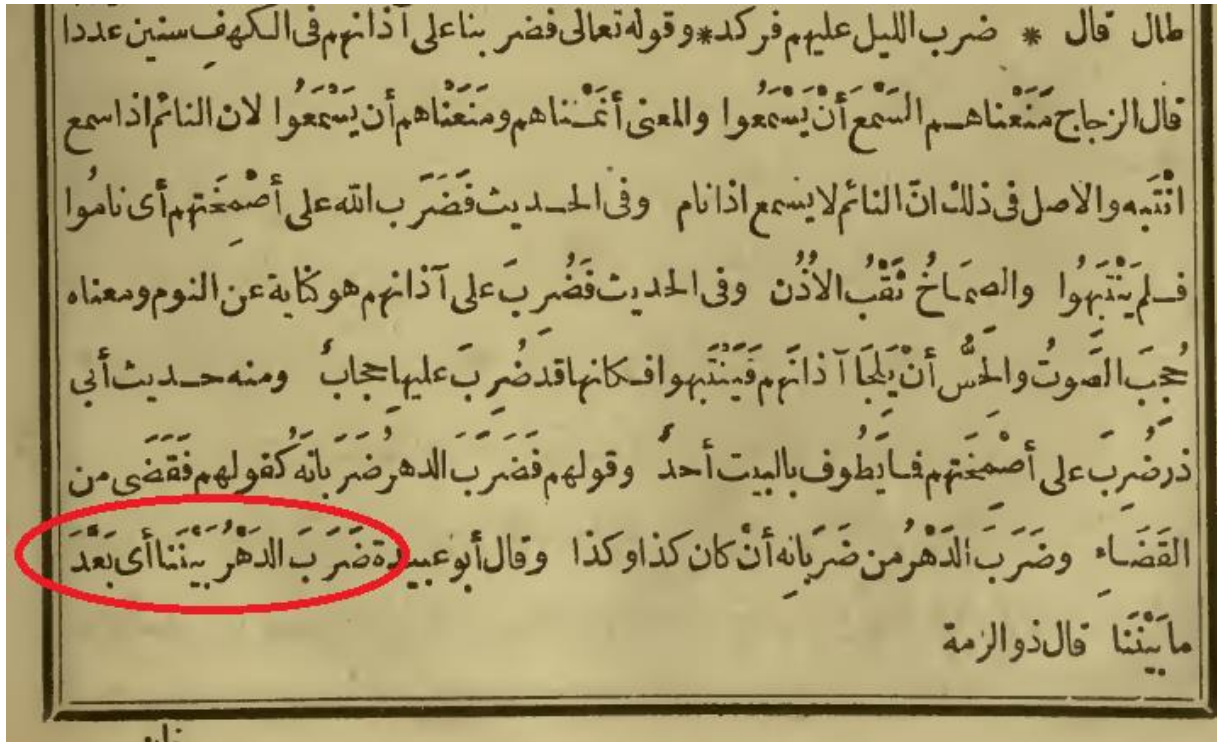 طال قال * ضرب الليل عليهم فركد * وقوله تعالى فضربنا على آذانهم فى الكهف سنين عددا
قال الزجاج مَنَعْناهم السَّمْعَ أَنْ يَسْمَعُوا والمعنى أَنَمْناهم ومَنَعْناهم أَن يَسْمَعُوا لان النائم اذا سمع
انْتَبَه والاصل فى ذلك انّ النائم لا يسمع اذا نام وفى الحديث فَضَرَبَ الله على أَصْمِخَتهم أى نامُوا
فلم يَنْتَبِهُوا والصِمَاخُ ثَقْبُ الأُذُن وفى الحديث فَضُرِبَ على آذانهم هو كناية عن النوم ومعناه
حُجِبَ الصَوتُ والحِسُّ أَنْ يَلِجَا آذانَهم فَيَنْتَبِهوا فكانها قد ضُرِبَ عليها حجابٌ ومنه حديث أبى
ذر ضُرِبَ على أَصْمِخَتهم فما يَطُوف بالبيت أحدٌ وقولهم فَضَرَبَ الدهرُ ضَرَبانَه كقولهم فَقَضَى من
القَضَاءِ وضَرَبَ الدَهْرُ من ضَرَبانِه أَنْ كان كذا وكذا وقال أبو عبيدة ضَرَبَ الدَهْرُ بَيْنَنا أى بَعَّدَ
ما بَيْنَنا قال ذو الرمة